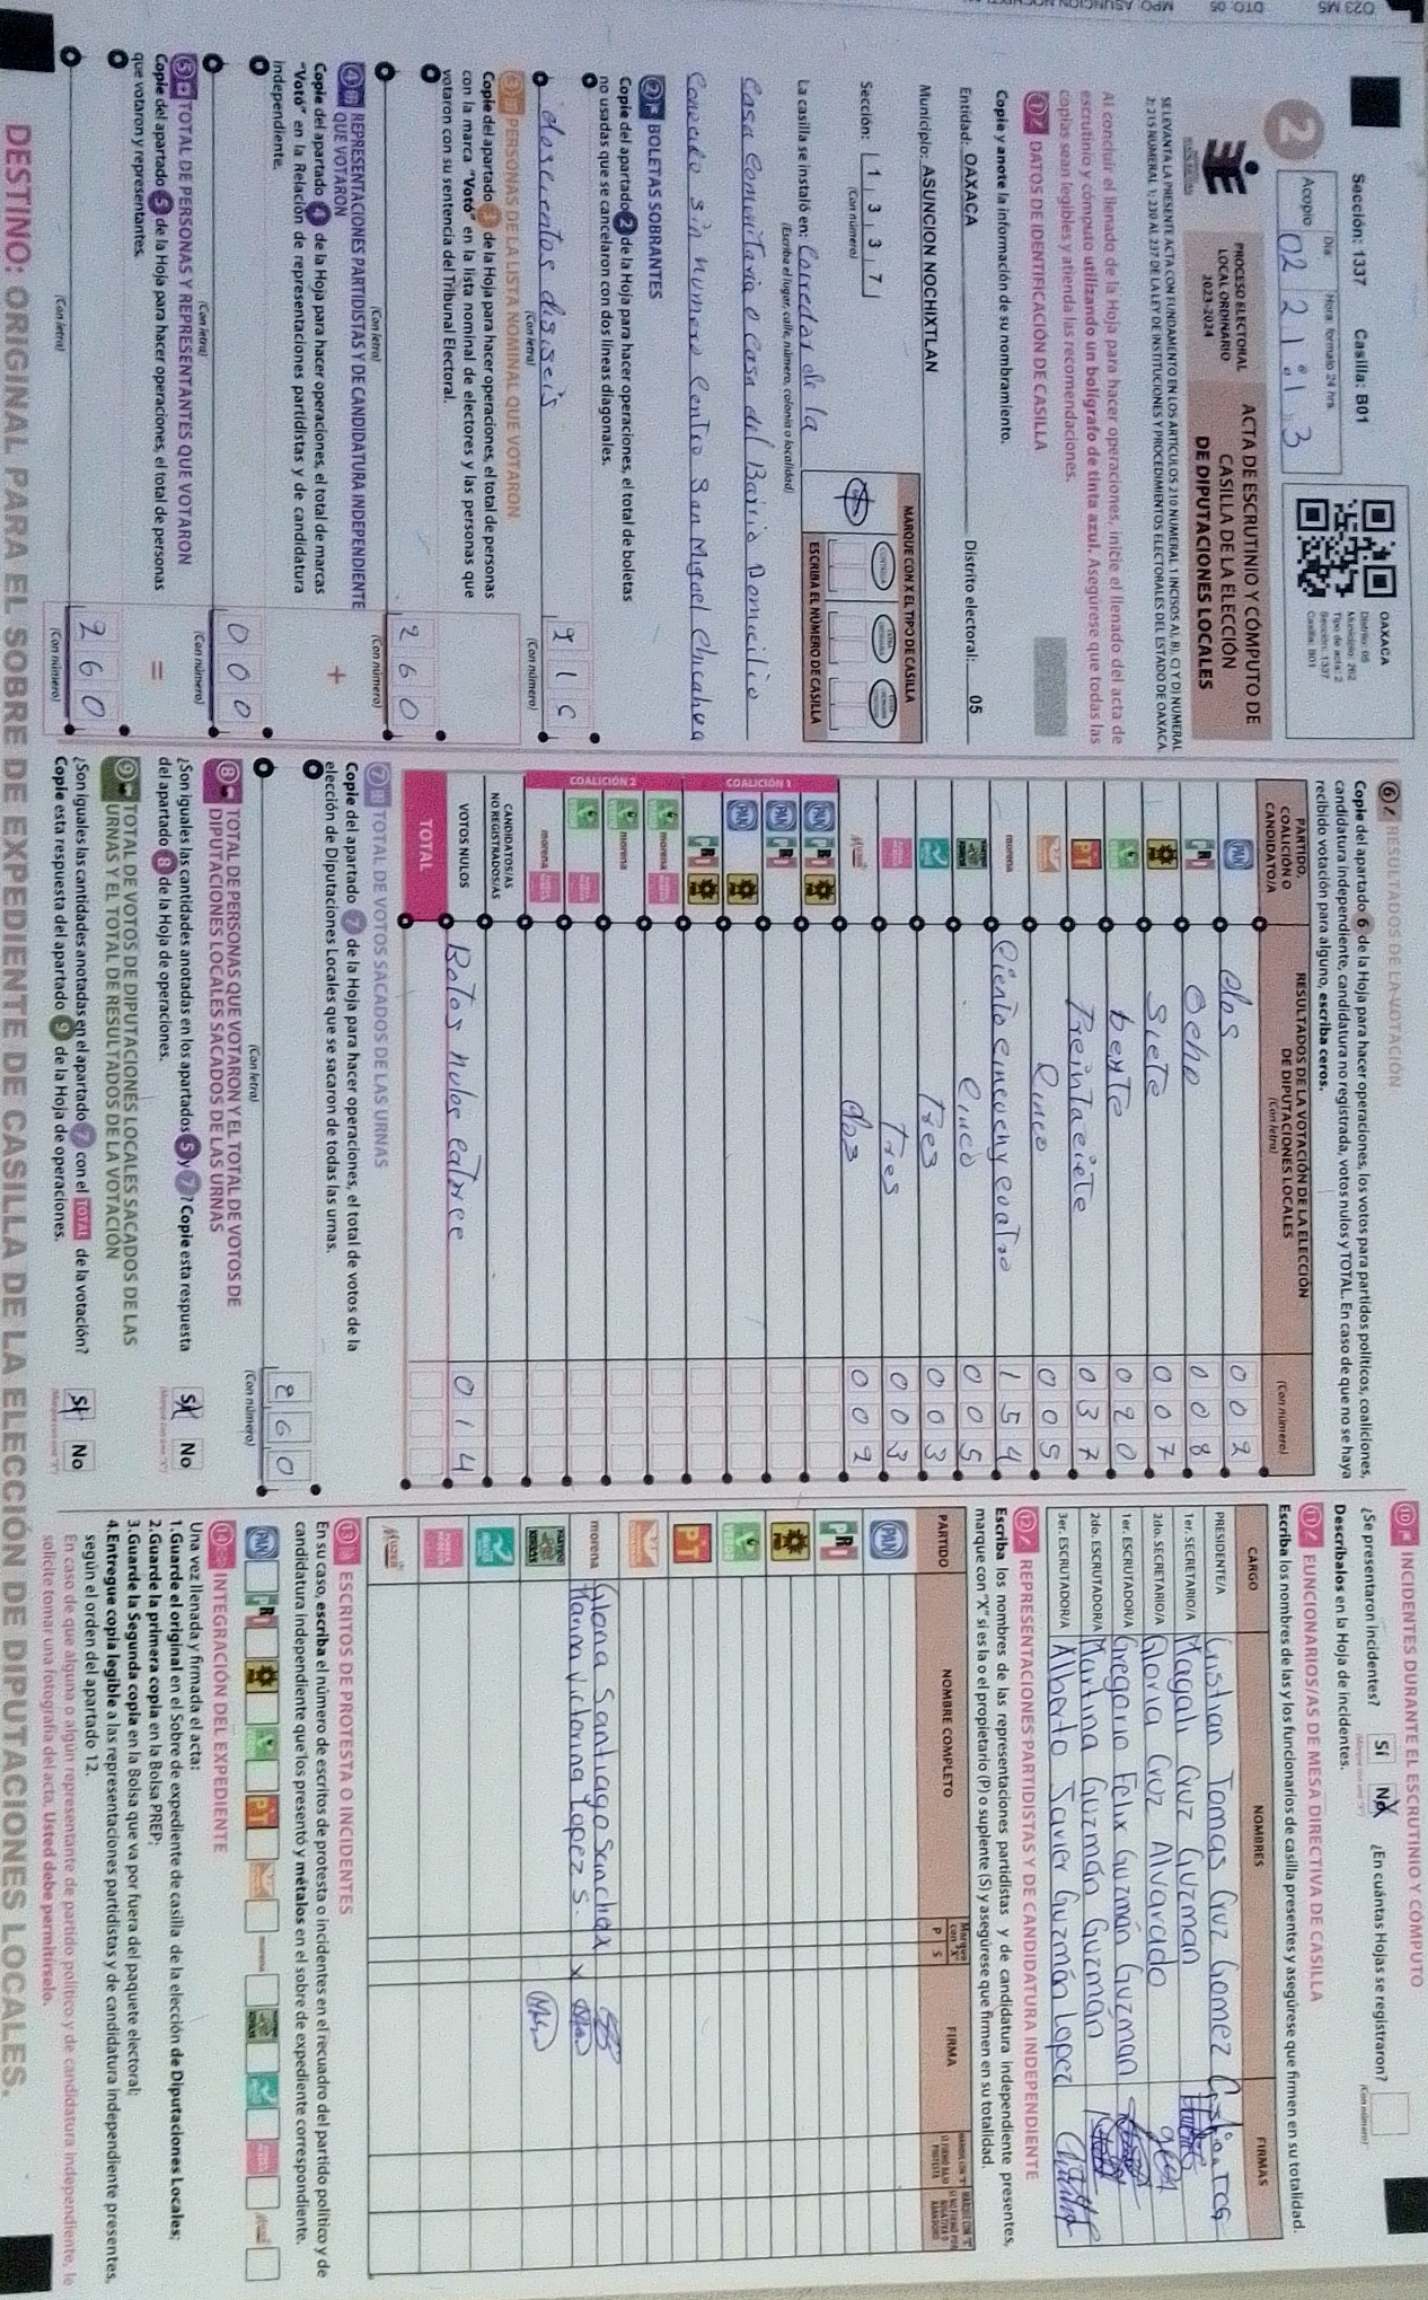 Sección: 1337 Casilla: B01
Acopio
Día
Hora formato 24 hrs.
02 21:13
OAXACA
Distrito: 05
Municipio: 262
Tipo de acta: 2
Sección: 1337
Casilla: B01
2
PROCESO ELECTORAL
LOCAL ORDINARIO
2023-2024
ACTA DE ESCRUTINIO Y CÓMPUTO DE
CASILLA DE LA ELECCIÓN
DE DIPUTACIONES LOCALES
SE LEVANTA LA PRESENTE ACTA CON FUNDAMENTO EN LOS ARTÍCULOS 210 NUMERAL 1 INCISOS A), B), C) Y D) NUMERAL
2; 215 NUMERAL 1; 230 AL 237 DE LA LEY DE INSTITUCIONES Y PROCEDIMIENTOS ELECTORALES DEL ESTADO DE OAXACA.
Al concluir el llenado de la Hoja para hacer operaciones, inicie el llenado del acta de
escrutinio y cómputo utilizando un bolígrafo de tinta azul. Asegúrese que todas las
copias sean legibles y atienda las recomendaciones.
1 DATOS DE IDENTIFICACIÓN DE CASILLA
Copie y anote la información de su nombramiento.
Entidad: OAXACA Distrito electoral: 05
Municipio: ASUNCION NOCHIXTLAN
Sección: 1 3 3 7
(Con número)
MARQUE CON X EL TIPO DE CASILLA
ESCRIBA EL NÚMERO DE CASILLA
La casilla se instaló en: Corredor de la
(Escriba el lugar, calle, número, colonia o localidad)
Casa Comunitaria o Casa del Barrio Domicilio
Conocido sin numero Centro San Miguel Chicahua
2 BOLETAS SOBRANTES
Copie del apartado 2 de la Hoja para hacer operaciones, el total de boletas
no usadas que se cancelaron con dos líneas diagonales.
doscientos disiseis
216
(Con letra)
(Con número)
3 PERSONAS DE LA LISTA NOMINAL QUE VOTARON
Copie del apartado 3 de la Hoja para hacer operaciones, el total de personas
con la marca "Votó" en la lista nominal de electores y las personas que
votaron con su sentencia del Tribunal Electoral.
260
(Con letra)
(Con número)
4 REPRESENTACIONES PARTIDISTAS Y DE CANDIDATURA INDEPENDIENTE
QUE VOTARON
+
Copie del apartado 4 de la Hoja para hacer operaciones, el total de marcas
"Votó" en la Relación de representaciones partidistas y de candidatura
independiente.
000
(Con letra)
(Con número)
5 TOTAL DE PERSONAS Y REPRESENTANTES QUE VOTARON
=
Copie del apartado 5 de la Hoja para hacer operaciones, el total de personas
que votaron y representantes.
260
(Con letra)
(Con número)
6 RESULTADOS DE LA VOTACIÓN
Copie del apartado 6 de la Hoja para hacer operaciones, los votos para partidos políticos, coaliciones,
candidatura independiente, candidatura no registrada, votos nulos y TOTAL. En caso de que no se haya
recibido votación para alguno, escriba ceros.
PARTIDO,
COALICIÓN O
CANDIDATO/A
RESULTADOS DE LA VOTACIÓN DE LA ELECCIÓN
DE DIPUTACIONES LOCALES
(Con letra)
(Con número)
PAN dos 002
PRI Ocho 008
PRD Siete 007
VERDE bente 020
PT Treintaciete 037
Cinco 005
morena Ciento cincuenycuatro 154
Cinco 005
tres 003
tres 003
dos 002
COALICIÓN 1
PAN PRI PRD
PAN PRI
PAN PRD
PRI PRD
COALICIÓN 2
VERDE morena
VERDE morena
VERDE
morena
CANDIDATOS/AS
NO REGISTRADOS/AS
VOTOS NULOS Botos nulos catorce 014
TOTAL
7 TOTAL DE VOTOS SACADOS DE LAS URNAS
Copie del apartado 7 de la Hoja para hacer operaciones, el total de votos de la
elección de Diputaciones Locales que se sacaron de todas las urnas.
260
(Con letra)
(Con número)
8 TOTAL DE PERSONAS QUE VOTARON Y EL TOTAL DE VOTOS DE
DIPUTACIONES LOCALES SACADOS DE LAS URNAS
¿Son iguales las cantidades anotadas en los apartados 5 y 7? Copie esta respuesta
del apartado 8 de la Hoja de operaciones.
Sí No
9 TOTAL DE VOTOS DE DIPUTACIONES LOCALES SACADOS DE LAS
URNAS Y EL TOTAL DE RESULTADOS DE LA VOTACIÓN
¿Son iguales las cantidades anotadas en el apartado 7 con el TOTAL de la votación?
Copie esta respuesta del apartado 9 de la Hoja de operaciones.
Sí No
10 INCIDENTES DURANTE EL ESCRUTINIO Y CÓMPUTO
¿Se presentaron incidentes? Sí No ¿En cuántas Hojas se registraron?
(Con número)
Descríbalos en la Hoja de incidentes.
11 FUNCIONARIOS/AS DE MESA DIRECTIVA DE CASILLA
Escriba los nombres de las y los funcionarios de casilla presentes y asegúrese que firmen en su totalidad.
CARGO NOMBRES FIRMAS
PRESIDENTE/A Cristian Tomas Cruz Gomez
1er. SECRETARIO/A Magali Cruz Guzman
2do. SECRETARIO/A Gloria Cruz Alvarado
1er. ESCRUTADOR/A Gregorio Felix Guzmán Guzman
2do. ESCRUTADOR/A Martina Guzmán Guzman
3er. ESCRUTADOR/A Alberto Javier Guzmán Lopez
12 REPRESENTACIONES PARTIDISTAS Y DE CANDIDATURA INDEPENDIENTE
Escriba los nombres de las representaciones partidistas y de candidatura independiente presentes,
marque con "X" si es la o el propietario (P) o suplente (S) y asegúrese que firmen en su totalidad.
PARTIDO NOMBRE COMPLETO Marque con "X" P S FIRMA
PAN
PRI
PRD
VERDE
PT
morena Gloria Santiago Sanchez X
Marina Victorina Lopez S. X
13 ESCRITOS DE PROTESTA O INCIDENTES
En su caso, escriba el número de escritos de protesta o incidentes en el recuadro del partido político y de
candidatura independiente que los presentó y métalos en el sobre de expediente correspondiente.
14 INTEGRACIÓN DEL EXPEDIENTE
Una vez llenada y firmada el acta:
1.Guarde el original en el Sobre de expediente de casilla de la elección de Diputaciones Locales;
2.Guarde la primera copia en la Bolsa PREP;
3.Guarde la Segunda copia en la Bolsa que va por fuera del paquete electoral;
4.Entregue copia legible a las representaciones partidistas y de candidatura independiente presentes,
según el orden del apartado 12.
En caso de que alguna o algún representante de partido político y de candidatura independiente, le
solicite tomar una fotografía del acta, Usted debe permitírselo.
DESTINO: ORIGINAL PARA EL SOBRE DE EXPEDIENTE DE CASILLA DE LA ELECCIÓN DE DIPUTACIONES LOCALES.